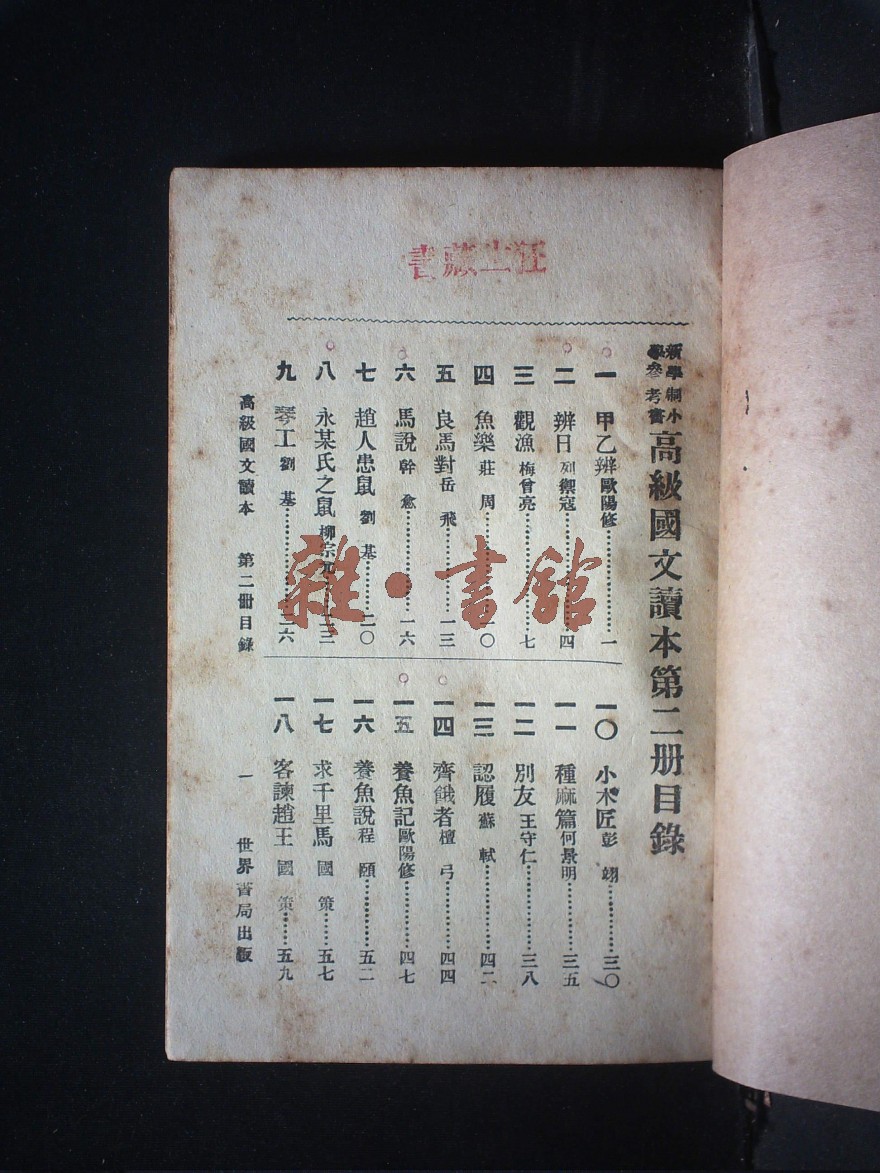 士藏書
新學制小
學參考書
高級國文讀本第二册目錄
一 甲乙辨 歐陽修……一
二 辨日 列禦寇……四
三 觀漁 梅曾亮……七
四 魚樂 莊周……一〇
五 良馬對 岳飛……一三
六 馬說 韓愈……一六
七 趙人患鼠 劉基……二〇
八 永某氏之鼠 柳宗元……二三
九 琴工 劉基……二六
一〇 小木匠 彭翊……三〇
一一 種麻篇 何景明……三五
一二 別友 王守仁……三八
一三 認履 蘇軾……四二
一四 齊餓者 檀弓……四四
一五 養魚記 歐陽修……四七
一六 養魚說 程頤……五二
一七 求千里馬 國策……五七
一八 客諫趙王 國策……五九
高級國文讀本 第二冊目錄 一 世界書局出版
雜·書館